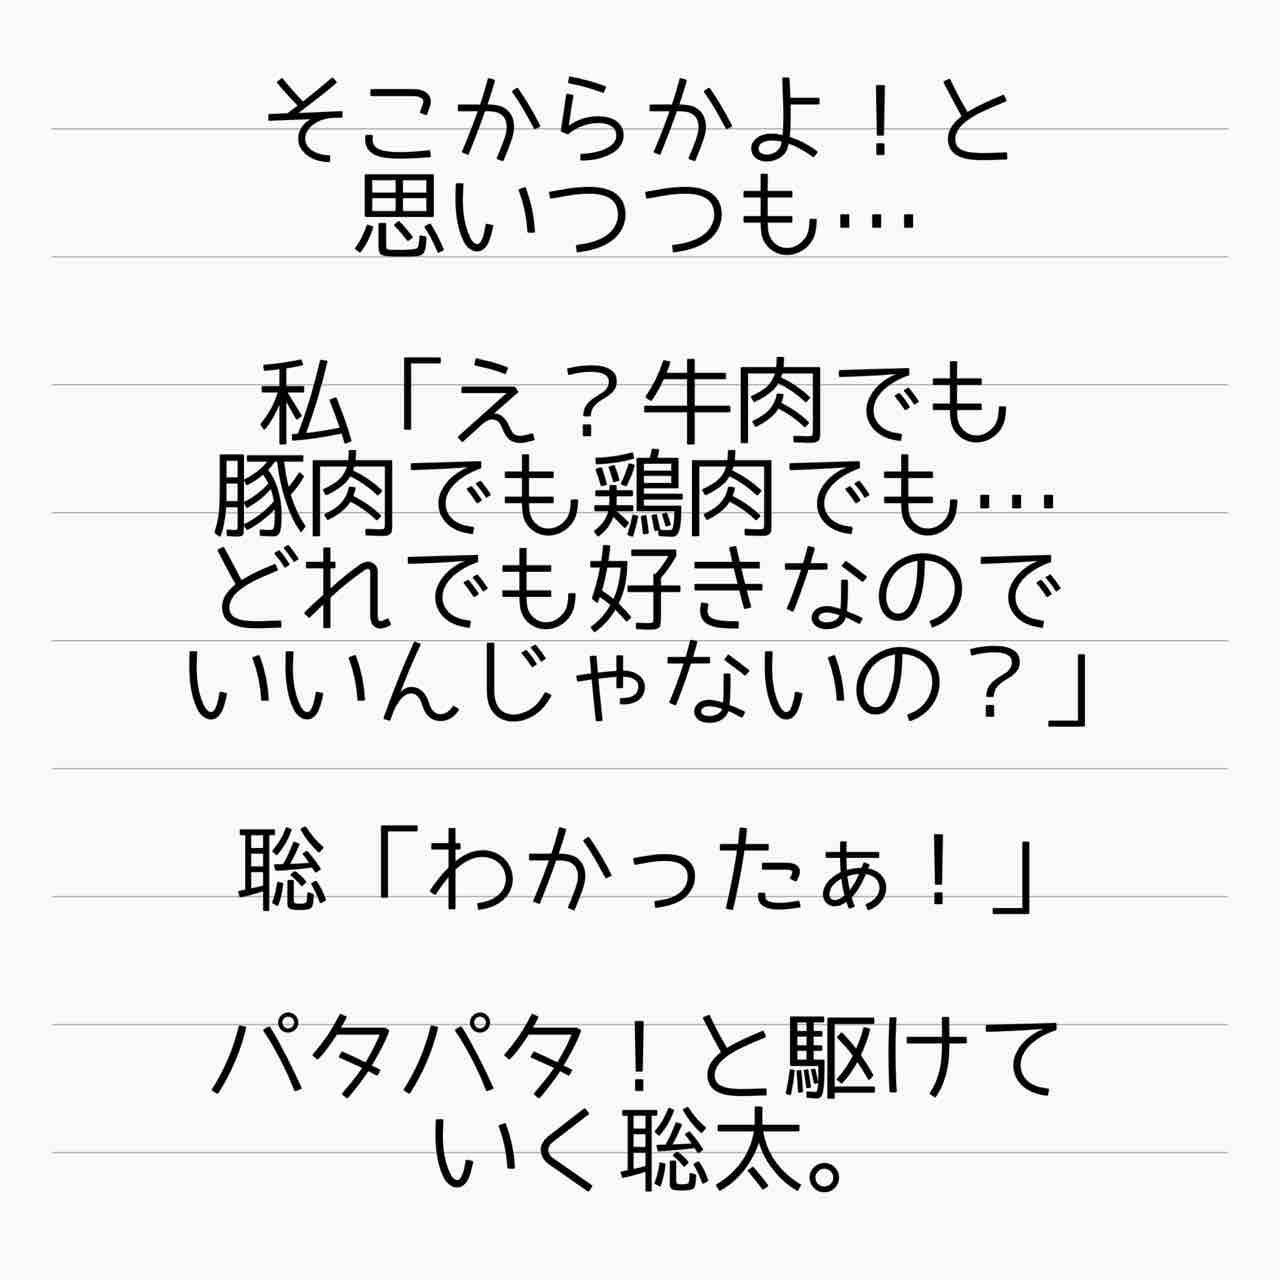 そこからかよ！と
思いつつも…
私「え？牛肉でも
豚肉でも鶏肉でも…
どれでも好きなので
いいんじゃないの？」
聡「わかったぁ！」
パタパタ！と駆けて
いく聡太。